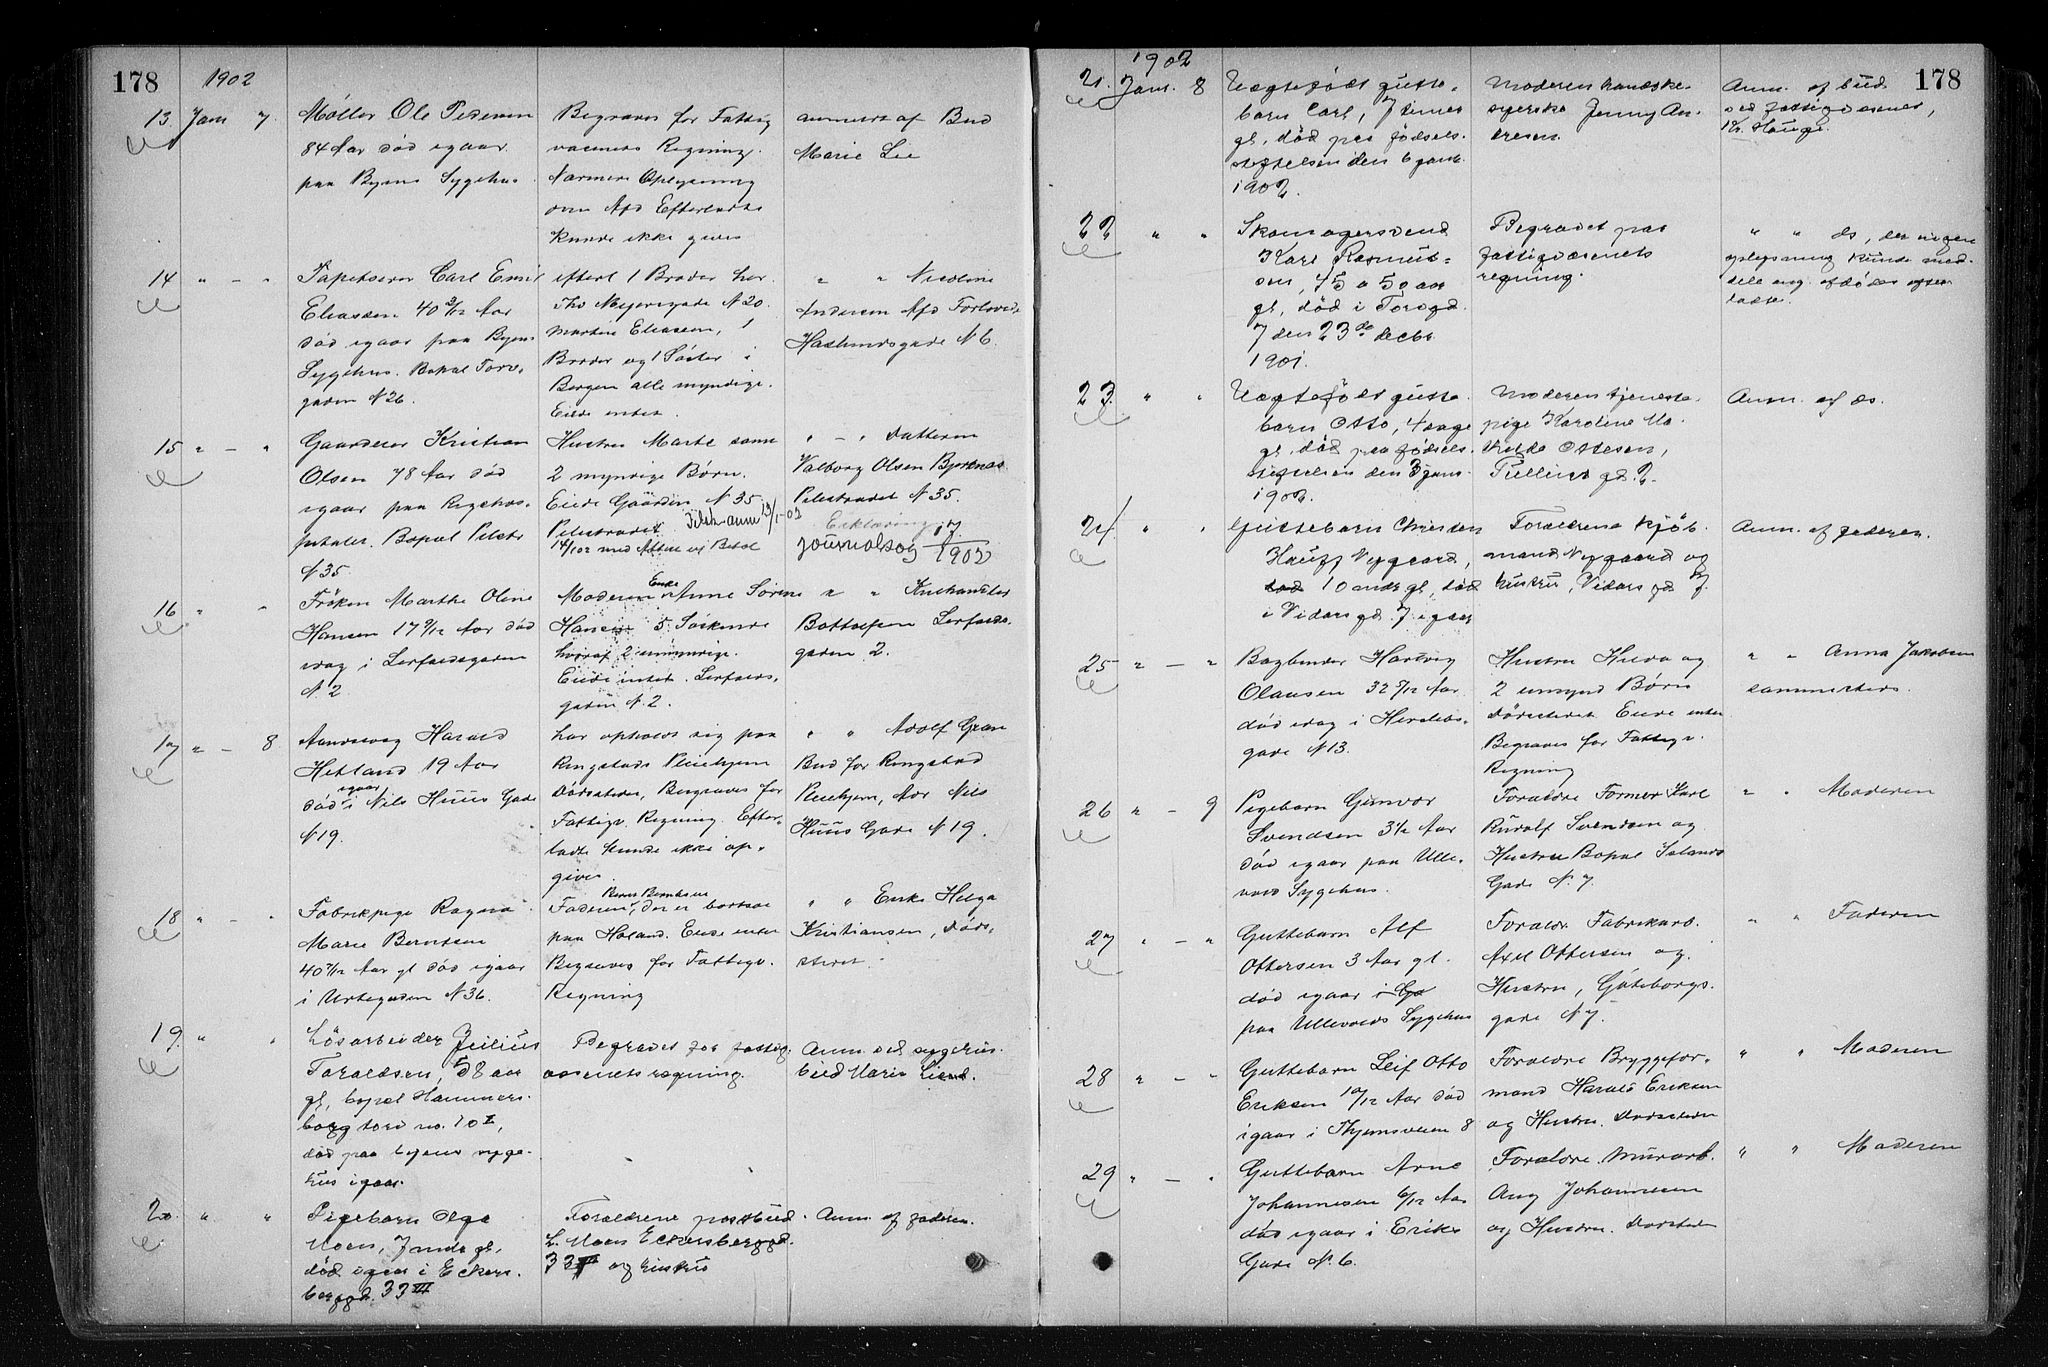 178
1902
13 Jan 7.
Møller Ole Pedersen
84 Aar død igaar
paa Byens Sygehus
Begraves for Fattig
væsenets Regning.
Nærmere Oplysning
om Afd Efterladte
kunde ikke gives
anmeldt af Bud
Marie Lie
14 " - "
Tapetserer Carl Emil
Eliassen 40 3/12 Aar
død igaar paa Byens
Sygehus. Bopæl Torv-
gaden N 26.
efterl 1 Broder her
Ths Meyersgade N 20.
Martin Eliassen, 1
Broder og 1 Søster i
Bergen alle myndige.
Eiede intet.
" " Nicoline
Andersen Afd Forlovede
Hausmandsgade N 6.
15 " - "
Gaardeier Kristian
Olsen 78 Aar død
igaar paa Rigshos-
pitalet. Bopæl Pilestr
N 35
Hustru Marte samt
2 myndige Børn.
Eiede Gaarden N 35
Pilestrædet
" - " Datteren
Valborg Olsen
Pilestrædet N 35.
Erklæring
journalbog 17/1 1902
16 " "
Frøken Marthe Oline
Hansen 17 9/12 Aar død
idag i Lerfosgaden
N 2
Moderen Enke Anne Sørine
Hansen 5 Søskende
hvoraf 2 umyndige.
Eiede intet. Lerfos-
gaden N. 2.
" "
Bottolfsen Lerfos-
gaden 2.
17 " - 8
Harald
Hetland 19 Aar
død igaar i Nils Huus Gade
N 19.
har opholdt sig paa
Ringstads Pleiehjem
Dødsstedet, Begraves for
Fattigv. Regning. Efter-
ladte kunde ikke op-
gives.
" " Adolf Gran
Bud for Ringstad
Pleiehjem, Adr Nils
Huus Gade N 19.
18 " - "
Fabrikpige Ragna
Marie Berntsen
40 7/12 Aar gl død igaar
i Urtegaden N 36.
Faderen, der er bortsat
paa Høland. Eiede intet
Begraves for Fattigv.
Regning
" " Enke Helga
Kristiansen, Døds-
stedet.
19. " "
Løsarbeider Julius
Taraldsen, 58 aar
gl, bopæl Hammers-
borg torv no. 10 I,
død paa byens syge-
hus igaar.
Begravet for fattig-
væsenets regning.
Anm. ved sygehus-
bud Marie Lie.
20. " "
Pigebarn Olga
Moen, 7 mdr gl,
død igaar i Eckers-
berggd. 33 III
Forældrene postbud
L. Moen Eckersberggd.
33 III og hustru
Anm. af faderen.
178
1902
21. Jan. 8
Uægtefødt gutte-
barn Carl, 7 timer
gl, død paa fødsels-
stiftelsen den 6 janr.
1902.
Moderen handske-
syerske Jenny An-
dresen.
Anm. af bud
ved fattigvæsenet,
Kr. Hauge.
22 " "
Skomagersvend
Karl Rasmus-
sen, 45 a 50 aar
gl, død i Torvgd.
7 den 23de decbr
1901.
Begravet paa
fattigvæsenets
regning.
" " ds, der ingen
oplysning kunde med-
dele ang. afdødes efter-
ladte.
23. " "
Uægtefødt gutte-
barn Otto, 4 dage
gl, død paa fødsels-
stiftelsen den 3 janr.
1902.
Moderen tjeneste-
pige Karoline Ma-
thilde Ottesen,
Tullins gd. 2.
Anm. af ds.
24. " "
Guttebarn Christen
Hauff Nygaard,
10 mdr gl, død
i Vidars gd. 7 igaar
Forældrene kjøb-
mand Nygaard og
hustru, Vidars gd 7
Anm. af faderen.
25 " - "
Bogbinder Hartvig
Olausen 32 5/12 Aar
død idag i Herslebs-
gade N 13.
Hustru Hulda og
2 umynd Børn
Dødsstedet. Eiede intet
Begraves for Fattigv.
Regning
" " Anna Jakobsen
sammesteds.
26 " - 9
Pigebarn Gunvor
Svendsen 3 1/2 Aar
død igaar paa Ulle-
vaal Sygehus.
Forældre Former Karl
Rudolf Svendsen og
Hustru Bopæl Islands
Gade N. 7.
" " Moderen
27 " - "
Guttebarn Alf
Ottersen 3 Aar gl.
død igaar i Gø
paa Ullevaals Sygehus
Forældr. Fabrikarb.
Axel Ottersen og
Hustru, Gøteborgs-
gade N 7.
" " Faderen
28 " - "
Guttebarn Leif Otto
Eriksen 10/12 Aar død
igaar i Thjemsveien 8
Forældre Bryggefor-
mand Harald Eriksen
og Hustru. Dødsstedet
" " Moderen
29 " - "
Guttebarn Arne
Johannesen 6/12 Aar
død igaar i Eriks
Gade N. 6.
Forældre. Murarb.
Aug Johannesen
og Hustru. Dødsstedet
" " Moderen